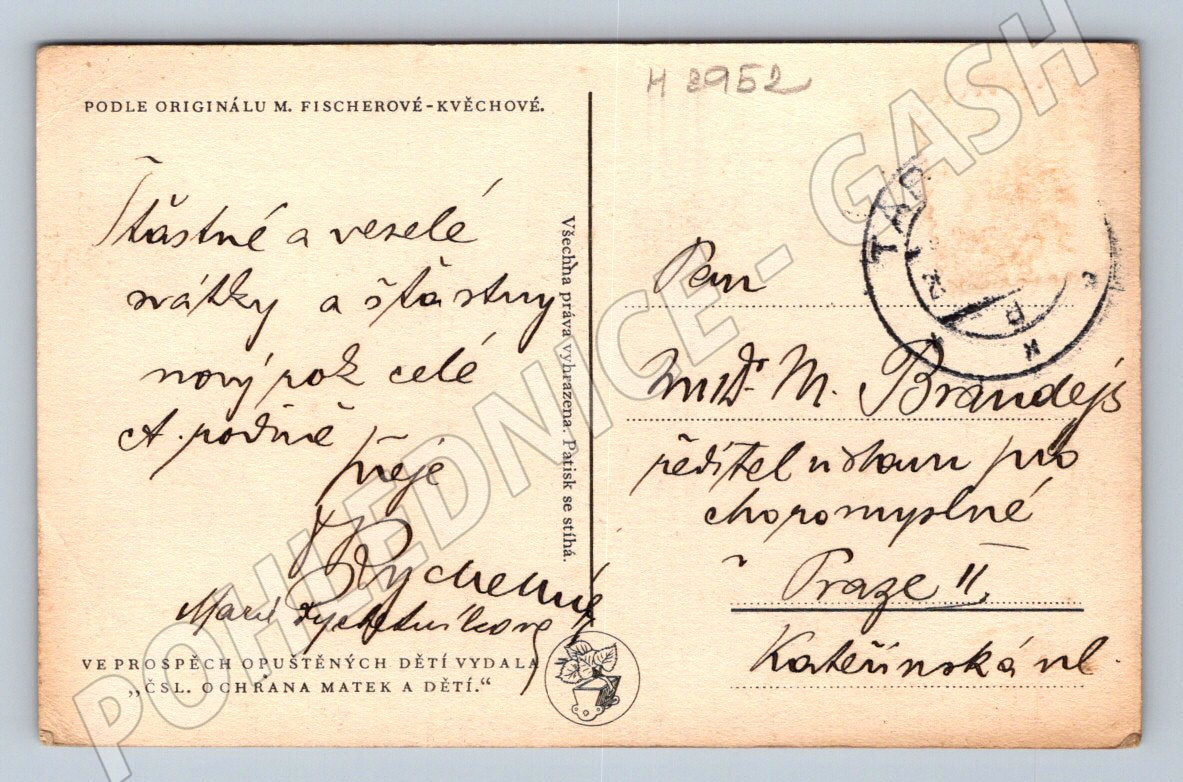 PODLE ORIGINÁLU M. FISCHEROVÉ-KVĚCHOVÉ.
H 2952
Šťastné a veselé
svátky a šťastný
nový rok celé
ct. rodině
přeje
Marie Rychetníkova
VE PROSPĚCH OPUŠTĚNÝCH DĚTÍ VYDALA
„ČSL. OCHRANA MATEK A DĚTÍ."
Všechna práva vyhrazena. Patisk se stíhá.
Pan
MUDr. M. Brandejs
ředitel ústavu pro
choromyslné
v Praze II.
Kateřinská ul.
POHLEDNICE - GASH